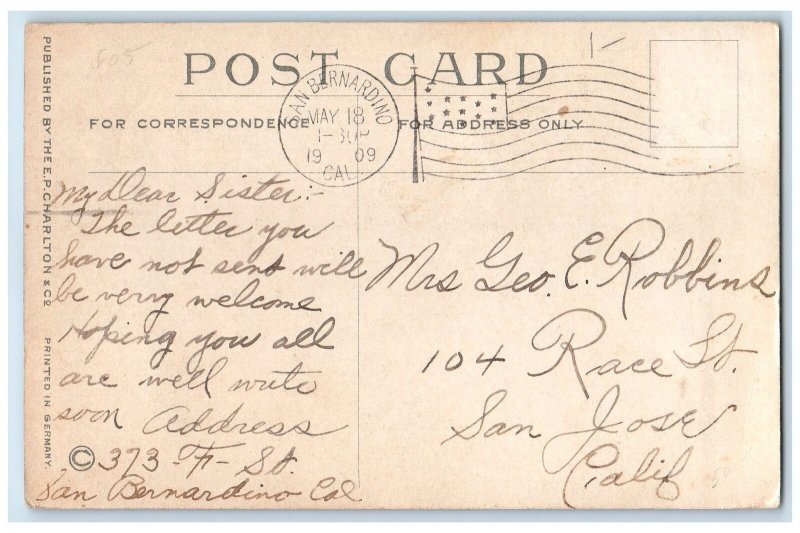 605
POST CARD
SAN BERNARDINO
MAY 18
19 09
CAL
FOR CORRESPONDENCE
FOR ADDRESS ONLY
PUBLISHED BY THE E.P. CHARLTON & CO. PRINTED IN GERMANY.
My Dear Sister:-
The letter you
have not sent will
be very welcome
Hoping you all
are well write
soon Address
© 373-F-St.
San Bernardino Cal
Mrs Geo. E. Robbins
104 Race St.
San Jose
Calif